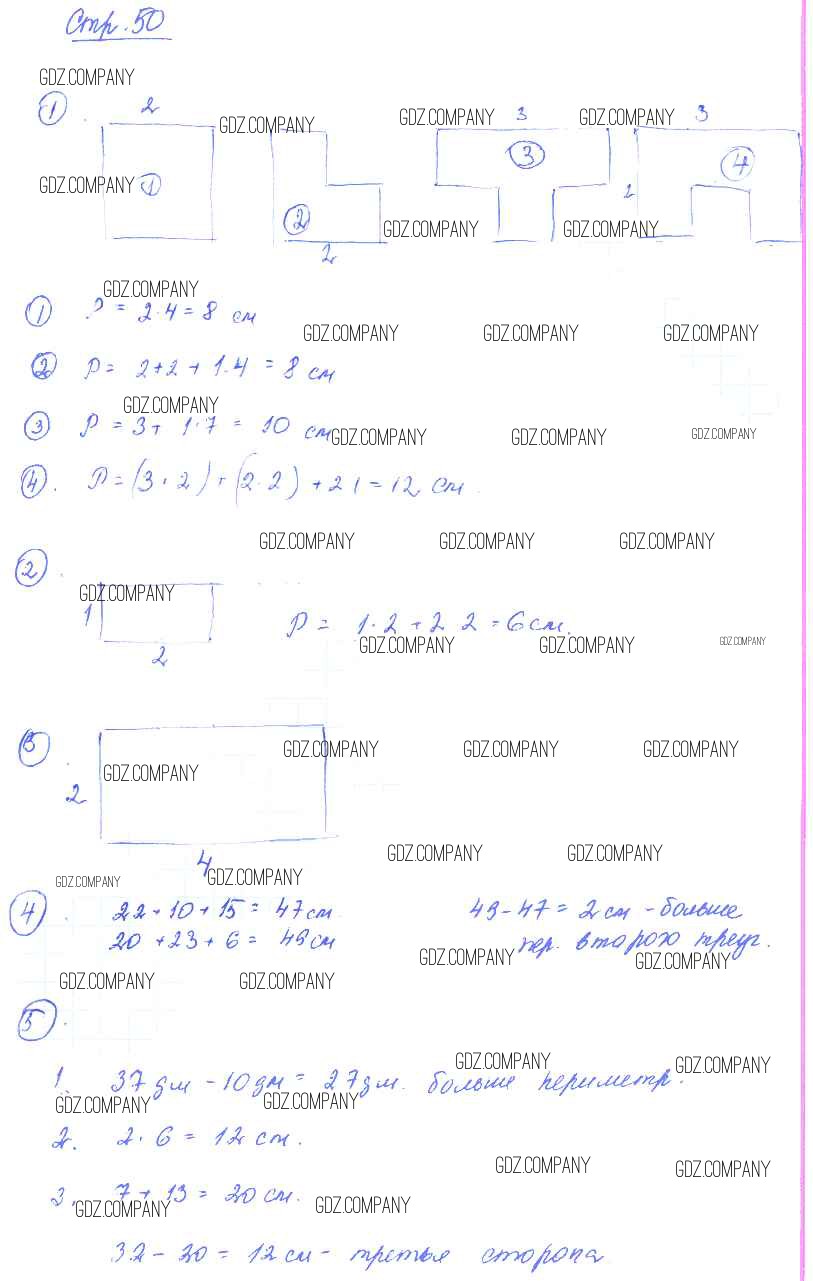 Стр. 50
GDZ.COMPANY
1 . 2 GDZ.COMPANY GDZ.COMPANY 3 GDZ.COMPANY 3
GDZ.COMPANY 1 3 4
2 GDZ.COMPANY GDZ.COMPANY 2
2
GDZ.COMPANY
1 P = 2·4 = 8 см
GDZ.COMPANY GDZ.COMPANY GDZ.COMPANY
2 P = 2+2+1·4 = 8 см
GDZ.COMPANY
3 P = 3+ 1·7 = 10 см GDZ.COMPANY GDZ.COMPANY GDZ.COMPANY
4 . P = (3·2)+(2·2)+2 1 = 12 см.
GDZ.COMPANY GDZ.COMPANY GDZ.COMPANY
2 .
GDZ.COMPANY
1 P = 1·2+2 2 = 6 см.
2 GDZ.COMPANY GDZ.COMPANY GDZ.COMPANY
3 . GDZ.COMPANY GDZ.COMPANY GDZ.COMPANY
GDZ.COMPANY
2
4 GDZ.COMPANY GDZ.COMPANY
GDZ.COMPANY GDZ.COMPANY
4 . 22+10+15 = 47 см. 49-47 = 2 см - больше
20+23+6 = 49 см GDZ.COMPANY пер. второго треуг.
GDZ.COMPANY
GDZ.COMPANY GDZ.COMPANY
5 .
GDZ.COMPANY GDZ.COMPANY
1. 37 дм - 10 дм = 27 дм. больше периметр.
GDZ.COMPANY GDZ.COMPANY
2. 2·6 = 12 см.
GDZ.COMPANY GDZ.COMPANY
3. 7+13 = 20 см.
GDZ.COMPANY GDZ.COMPANY
32-20 = 12 см - третья сторона